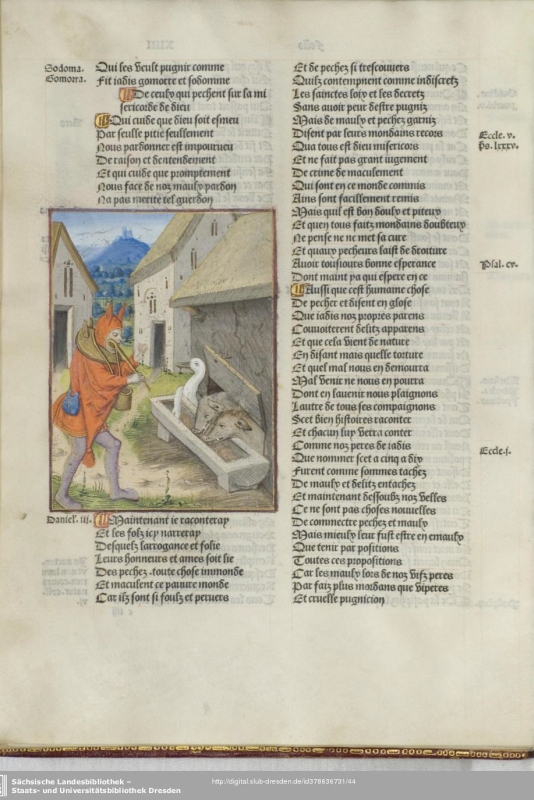 Sodoma.
Gomorra.
Qui les veult pugnir comme
Fit iadis gomorre et sodomme
De ceulx qui pechent sur la mi
sericorde de dieu
Qui cuide que dieu soit esmeu
Par seulle pitie seullement
Nous pardonner est impourueu
De raison et dentendement
Et qui cuide que promptement
Nous face de noz maulx pardon
Na pas merite tel guerdon
Daniel. iii.
Maintenant ie raconteray
Et les folz icy narreray
Desquelz larrogance et folie
Leurs honneurs et ames soit lie
Des pechez. toute chose immonde
Et maculent ce pauure monde
Car ilz sont si foulz et peruers
Et de pechez si trescouuers
Quilz contempnent comme indiscretz
Les sainctes loix et les decretz
Sans auoir peur destre pugniz
Mais de maulx et pechez garniz
Disent par leurs mondains recors
Eccle. v.
Qua tous est dieu misericors
ps. lxxxv.
Et ne fait pas grant iugement
De crime de maculement
Qui sont en ce monde commis
Ains sont facillement remis
Mais quil est bon doulx et piteux
Et quen tous faitz mondains doubteux
Ne pense ne ne met sa cure
Et quaux pecheurs laist de droiture
Auoir tousiours bonne esperance
Psal. cv.
Dont maint ya qui espere en ce
Aussi que cest humaine chose
De pecher et disent en glose
Que iadis noz propres parens
Couuoiterent delitz apparens
Et que cela vient de nature
En disant mais quelle torture
Et quel mal nous en demourra
Mal venir ne nous en pourra
Dont en lauenir nous plaignons
Lautre de tous ses compaignons
Scet bien histoires raconter
Et chacun luy verra conter
Comme noz peres de iadis
Eccle. i.
Que nommer scet a cinq a dix
Furent comme sommes tachez
De maulx et delitz entachez
Et maintenant dessoubz noz velles
Ce ne sont pas choses nouuelles
De commectre pechez et maulx
Mais mieulx leur fust estre en emaulx
Que tenir par positions
Toutes ces propositions
Car les maulx lors de noz vifz peres
Par faiz plus mordans que viperes
Et cruelle pugnicion
Sächsische Landesbibliothek –
Staats- und Universitätsbibliothek Dresden
http://digital.slub-dresden.de/id378636731/44